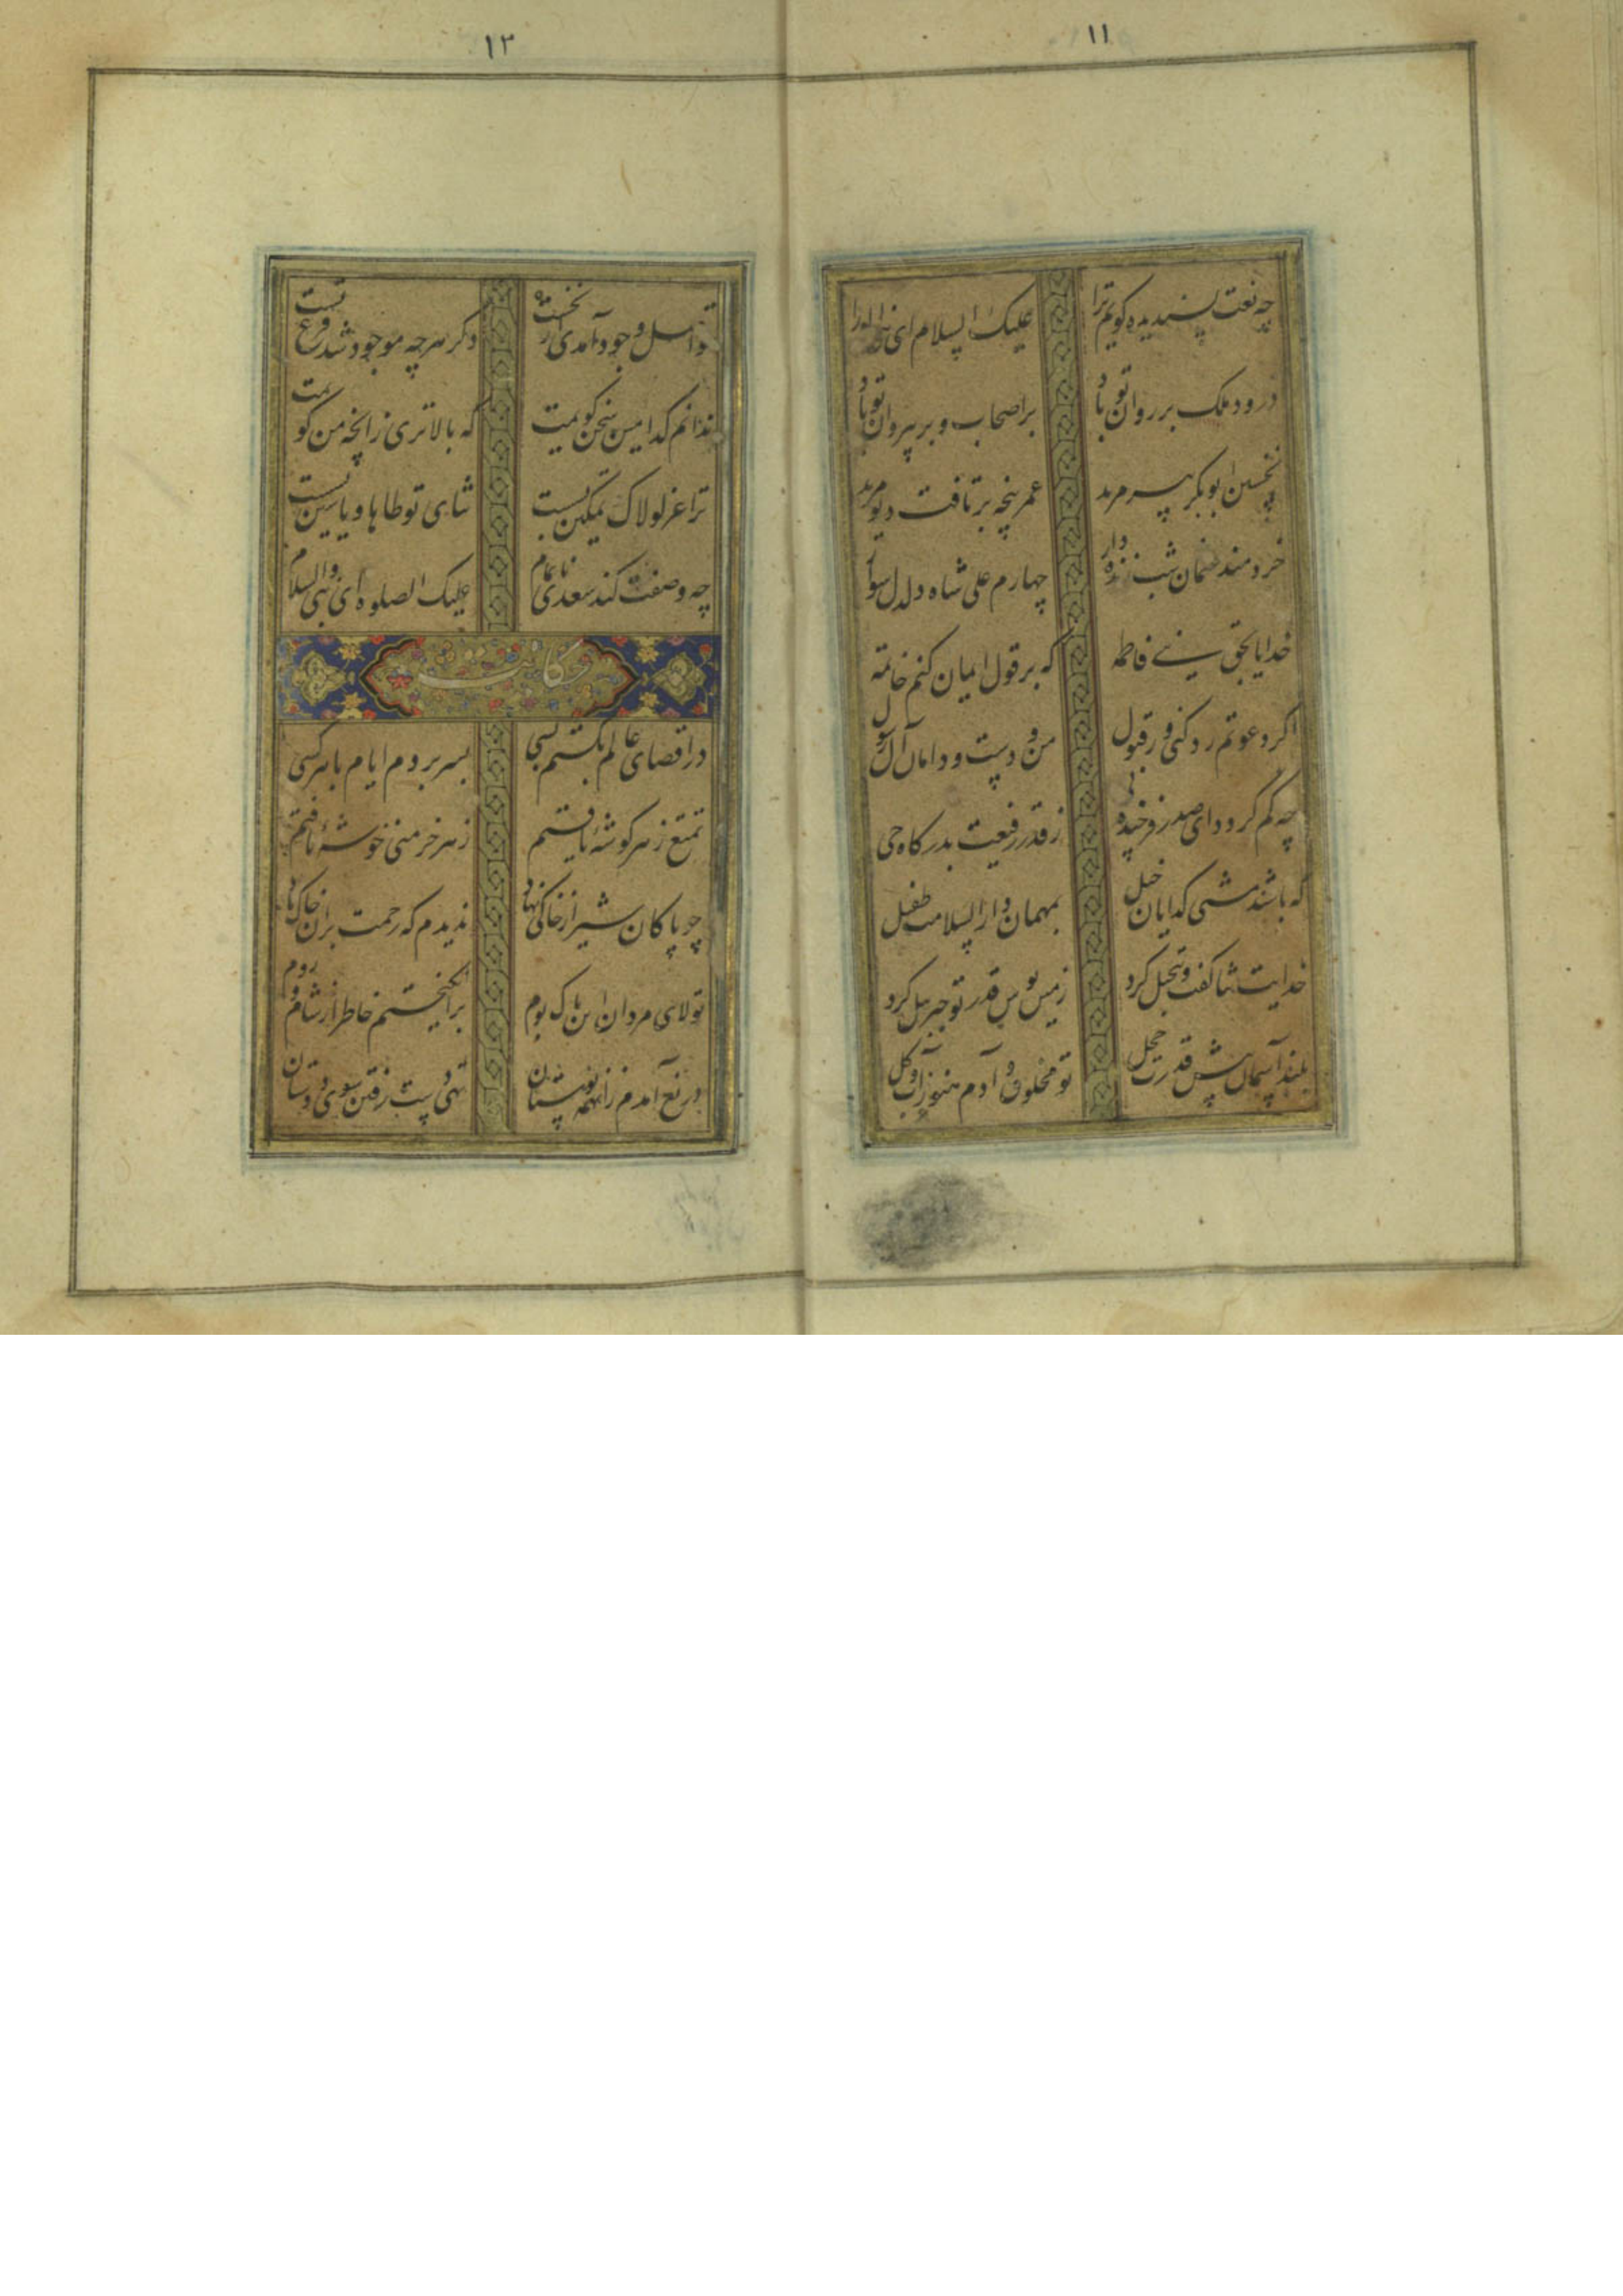 ۱۱
چه نعت پسندیده گویم ترا علیک السلام ای نبی الورا
درود ملک بر روان تو باد بر اصحاب و بر پیروان تو باد
نخستین ابوبکر پیر مرید عمر پنجه بر تافت دیو مرید
خردمند عثمان شب زنده دار چهارم علی شاه دلدل سوار
خدایا بحق بنی فاطمه که بر قول ایمان کنم خاتمه
اگر دعوتم رد کنی ور قبول من و دست و دامان آل رسول
چه کم گردد ای صدر فرخنده پی ز قدر رفیعت بدرگاه حی
که باشند مشتی گدایان خیل بمهمان دار السلامت طفیل
خدایت ثنا گفت و تبجیل کرد زمین بوس قدر تو جبریل کرد
بلند آسمان پیش قدرت خجل تو مخلوق و آدم هنوز آب و گل
۱۲
تو اصل وجود آمدی از نخست دگر هرچه موجود شد فرع تست
ندانم کدامین سخن گویمت که بالاتری زانچه من گویمت
ترا عز لولاک تمکین بست ثنای تو طاها و یاسین بست
چه وصفت کند سعدی ناتمام علیک الصلوه ای نبی والسلام
حکایت
در اقصای عالم بگشتم بسی بسر بردم ایام با هر کسی
تمتع ز هر گوشهٔ یافتم ز هر خرمنی خوشهٔ یافتم
چو پاکان شیراز خاکی نهاد ندیدم که رحمت بران خاک باد
تولای مردان این پاک بوم برانگیختم خاطر از شام و روم
دریغ آمدم زانهمه بوستان تهی دست رفتن سوی دوستان